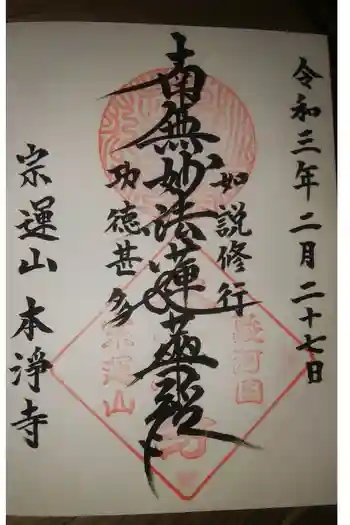 令和三年二月二十七日
如説修行
南無妙法蓮華経
功徳甚多
宗運山 本淨寺
駿河國
宗運山